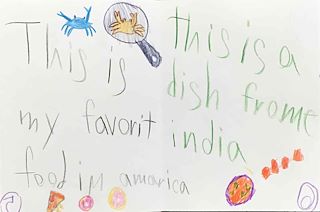 This is
my favorit
food im amarica
this is a
dish frome
india